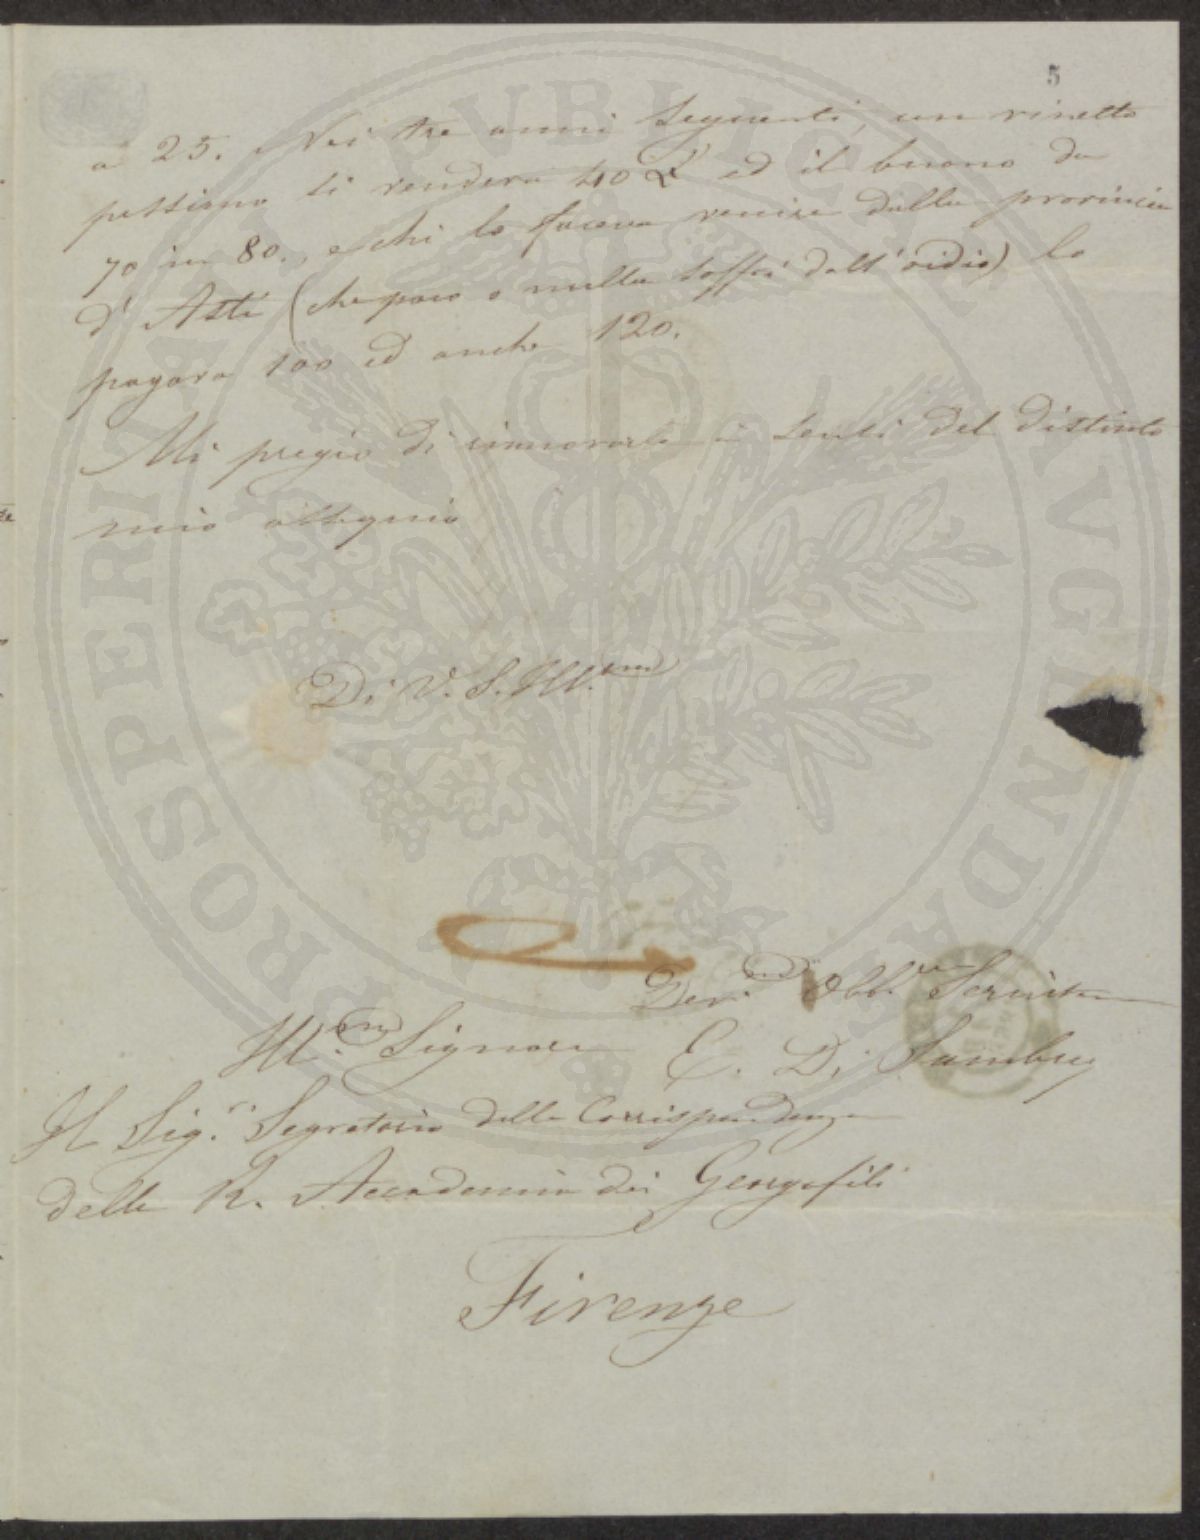 5
a 25. Nei tre anni seguenti, un vinetto
pessimo si vendeva 40 £ ed il buono da
70 in 80., e chi lo faceva venire dalla provincia
d'Asti (che poco o nulla soffrì dall'oidio) lo
pagava 100 ed anche 120.
Mi pregio di rinnovarle i sensi del distinto
mio ossequio
Di V. S. Ill.ma
Dev.mo Obb. Servitore
E. Di Sambuy
Ill.mo Signore
Il Sig.r Segretario della Corrispondenza
della R. Accademia dei Georgofili
Firenze
PROSPERITATI PVBLICAE AVGENDAE